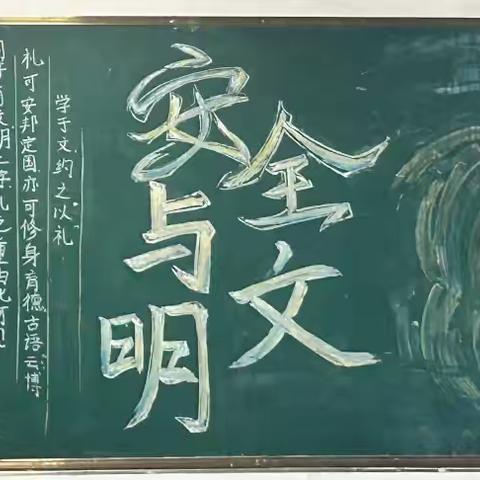 明之礼之重由此可见
礼可安邦定国,亦可修身育德,古语云:“博
学于文,约之以礼”
安全
与文
明